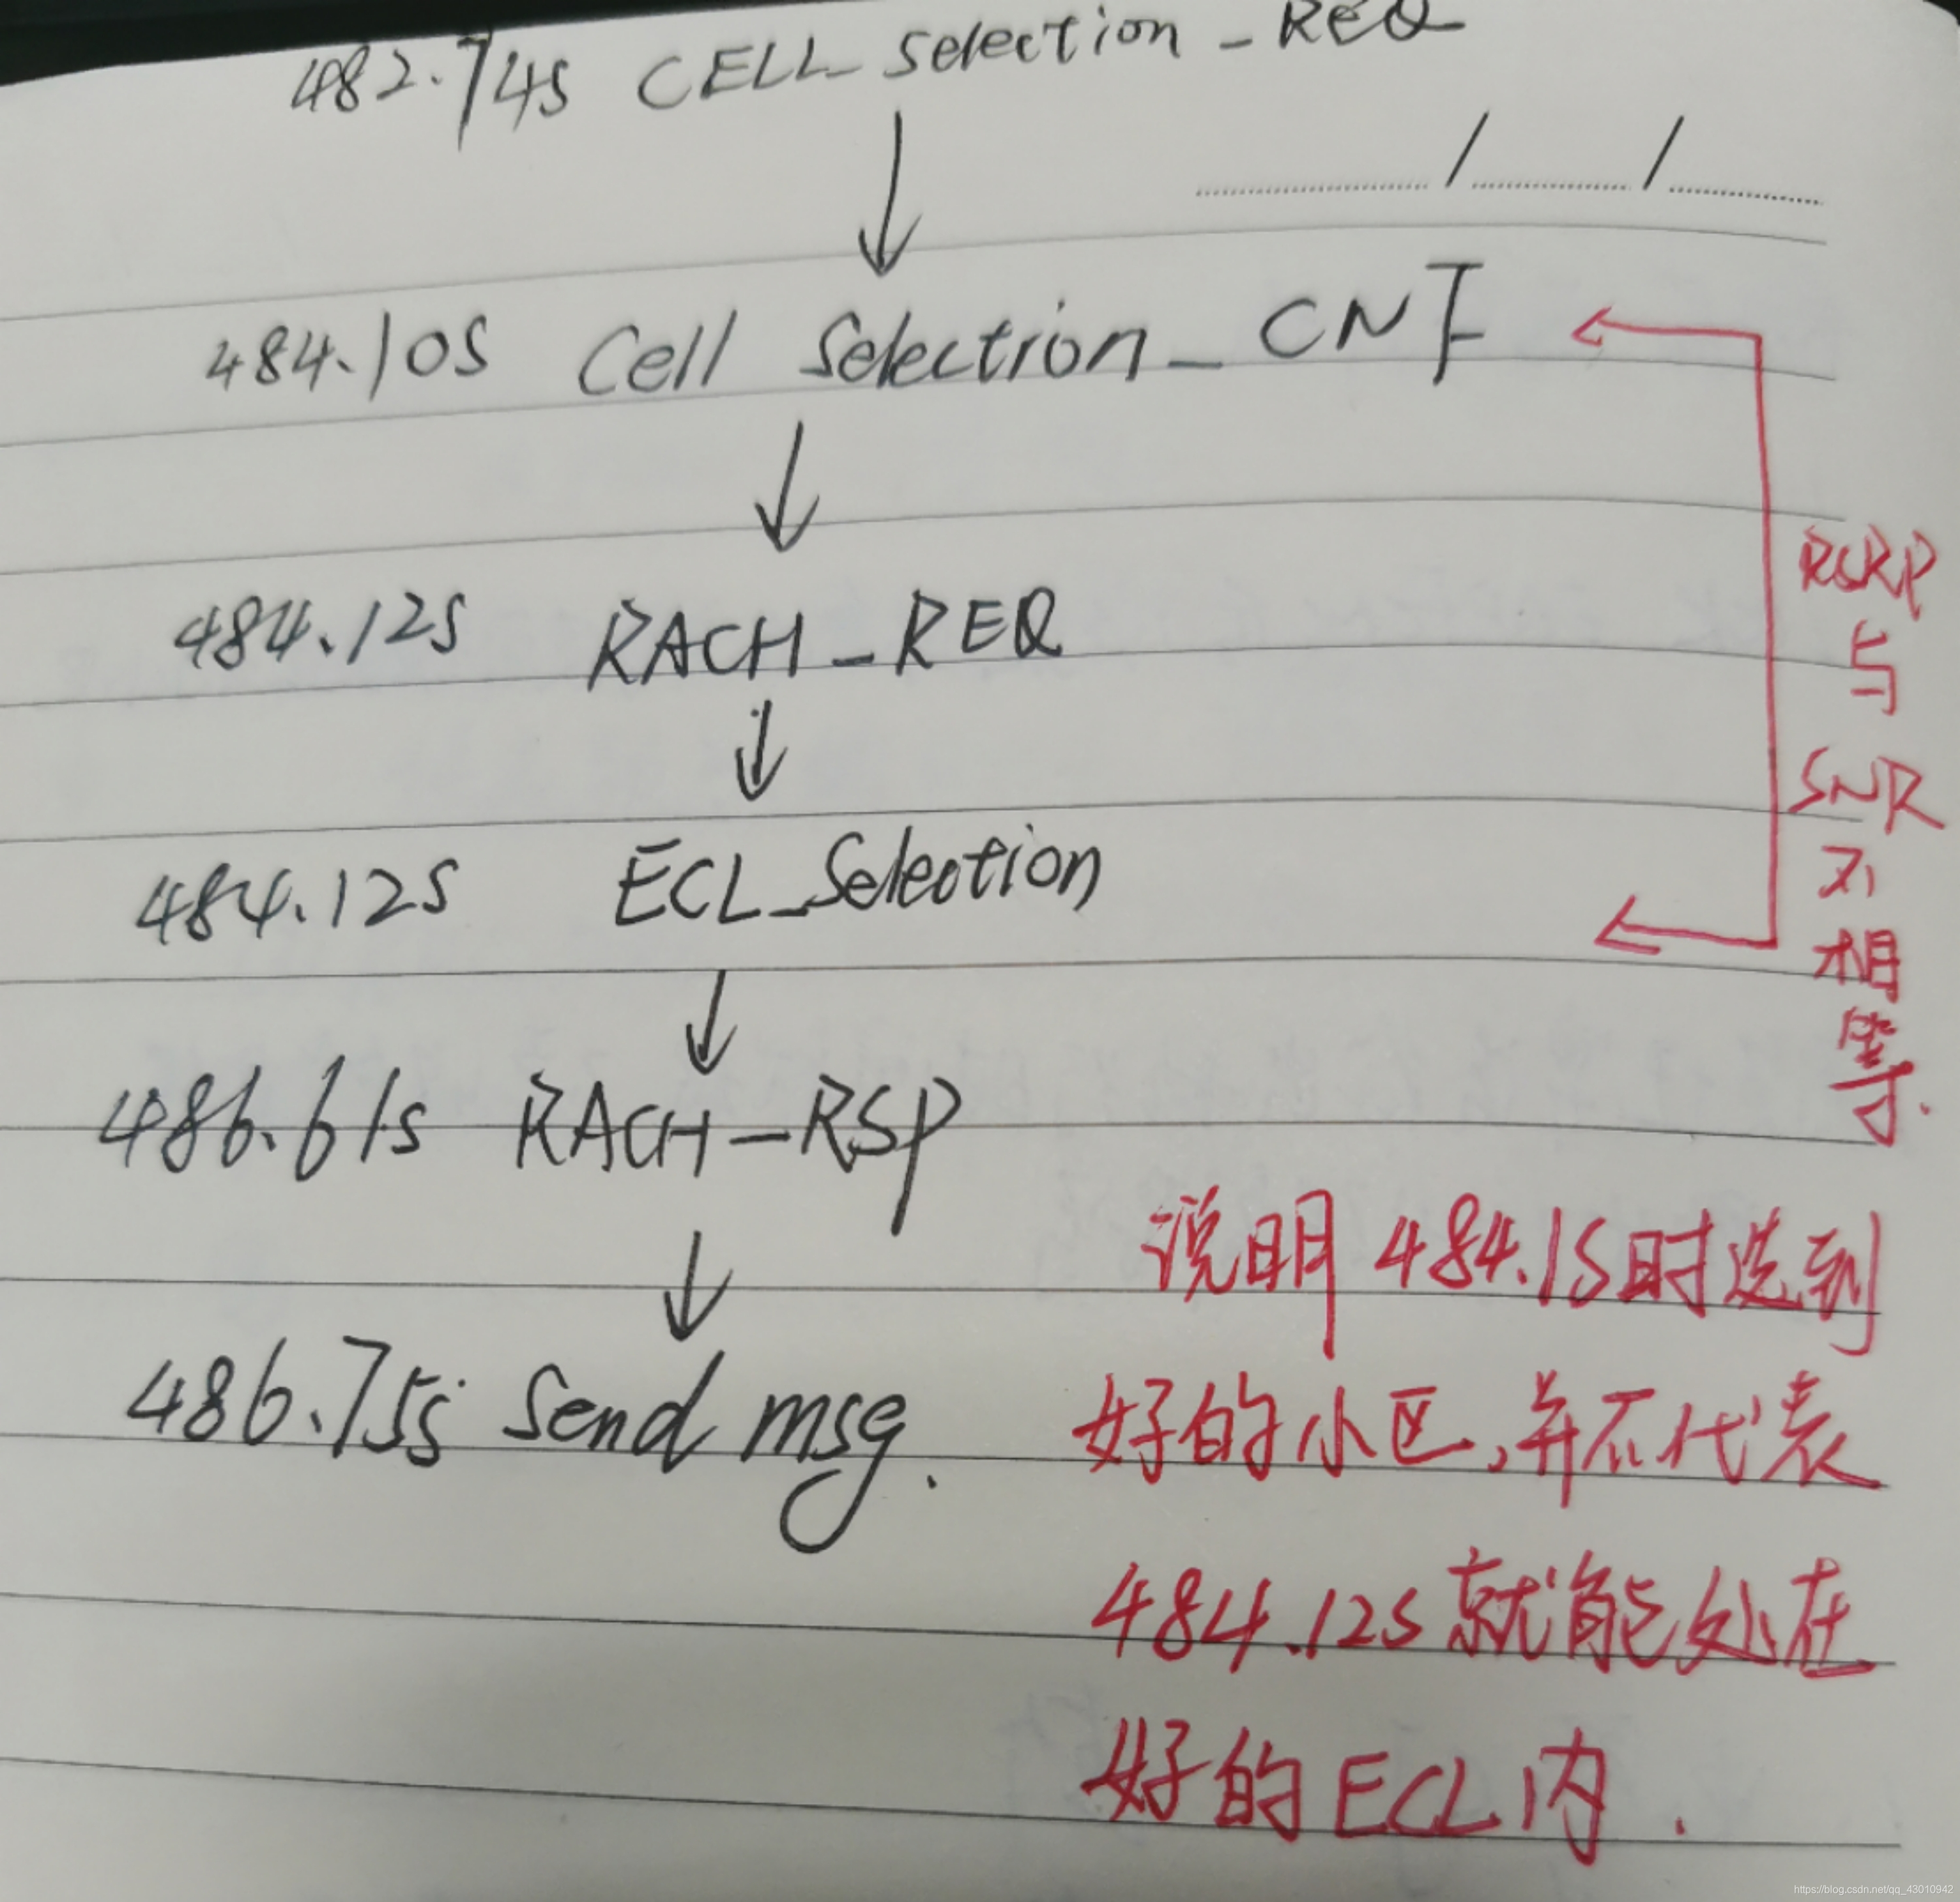 482.74s CELL_Selection_REQ
484.10s Cell Selection_CNF
484.12s RACH_REQ
484.12s ECL_Selection
486.61s RACH_RSP
486.75s Send msg.
RSRP
与
SNR
不
相
等.
说明484.1s时选到
好的小区,并不代表
484.12s就能处在
好的ECL内.
https://blog.csdn.net/qq_43010942